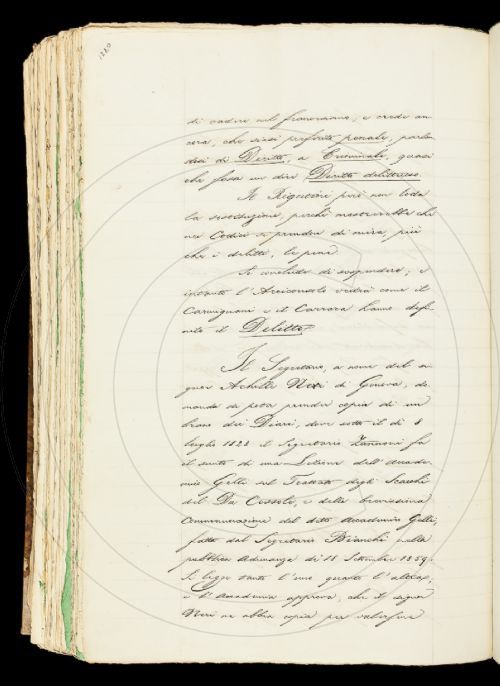 1220
di cadere nel francesismo, e crede an-
cora, che siasi preferito penale, parlan-
dosi di Diritto, a Criminale, quasi
che fosse un dire Diritto delittuoso.
Il Rigutini però non loda
la sostituzione, perchè mostrerebbe che
nei Codici si prendon di mira, più
che i delitti, le pene.
Si conclude di sospendere; e
intanto l'Arciconsolo vedrà come il
Carmignani e il Carrara hanno defi-
nito il Delitto.
Il Segretario, a nome del si-
gnor Achille Neri di Genova, do-
manda se possa prender copia di un
brano dei Diari, dove sotto il dì 8
luglio 1828 il Segretario Zannoni fa
il sunto di una Lezione dell'Accade-
mico Gelli sul Trattato degli Scacchi
del Da Cessole, e della brevissima
Commemorazione del detto Accademico Gelli,
fatta dal Segretario Bianchi nella
pubblica Adunanza de' 11 Settembre 1859.
Si legge tanto l'uno quanto l'altra,
e l'Accademia approva, che il signor
Neri ne abbia copia per valersene